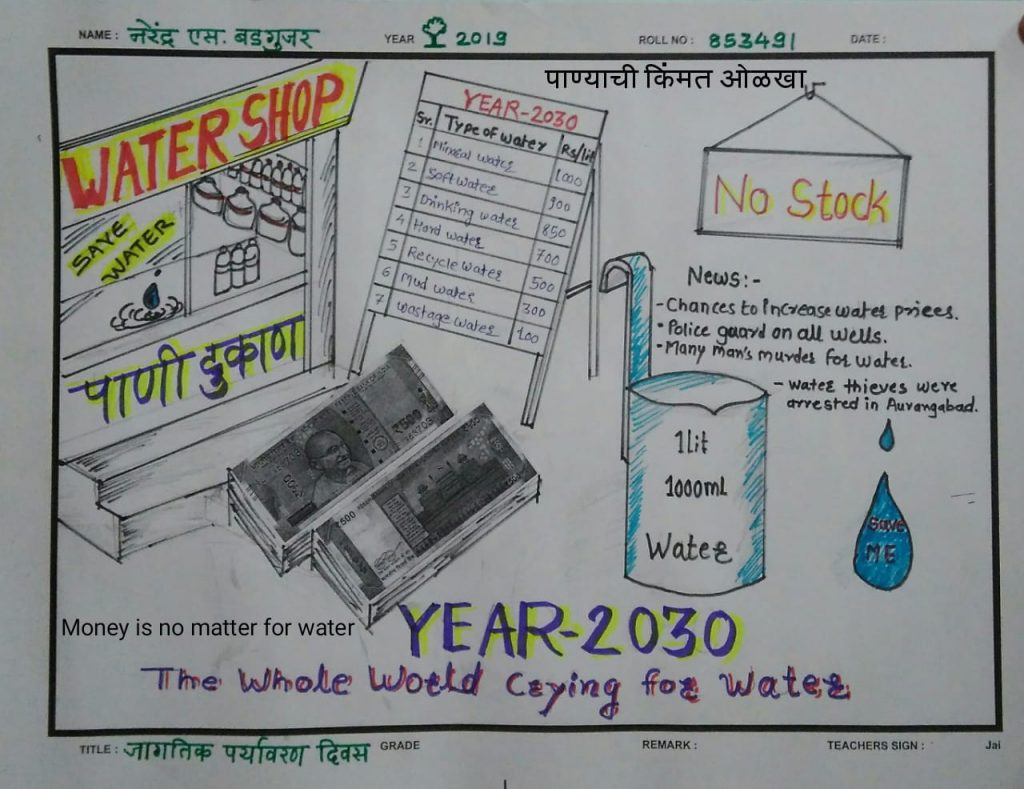 NAME : नरेंद्र एस. बडगुजर YEAR 2019 ROLL NO : 853491 DATE :
पाण्याची किंमत ओळखा
WATER SHOP
SAVE
WATER
पाणी दुकाण
YEAR-2030
Sr. Type of water Rs/lit
1 Mineral water 1000
2 Soft water 900
3 Drinking water 850
4 Hard water 700
5 Recycle water 500
6 Mud water 300
7 wastage water 100
No Stock
News:-
- Chances to increase water prices.
• Police guard on all wells.
- Many man's murder for water.
- water thieves were
arrested in Aurangabad.
1 Lit
1000mL
Water
Save
ME
₹500
₹500
Money is no matter for water
YEAR-2030
The Whole World Crying for Water
TITLE : जागतिक पर्यावरण दिवस GRADE REMARK : TEACHERS SIGN : Jai